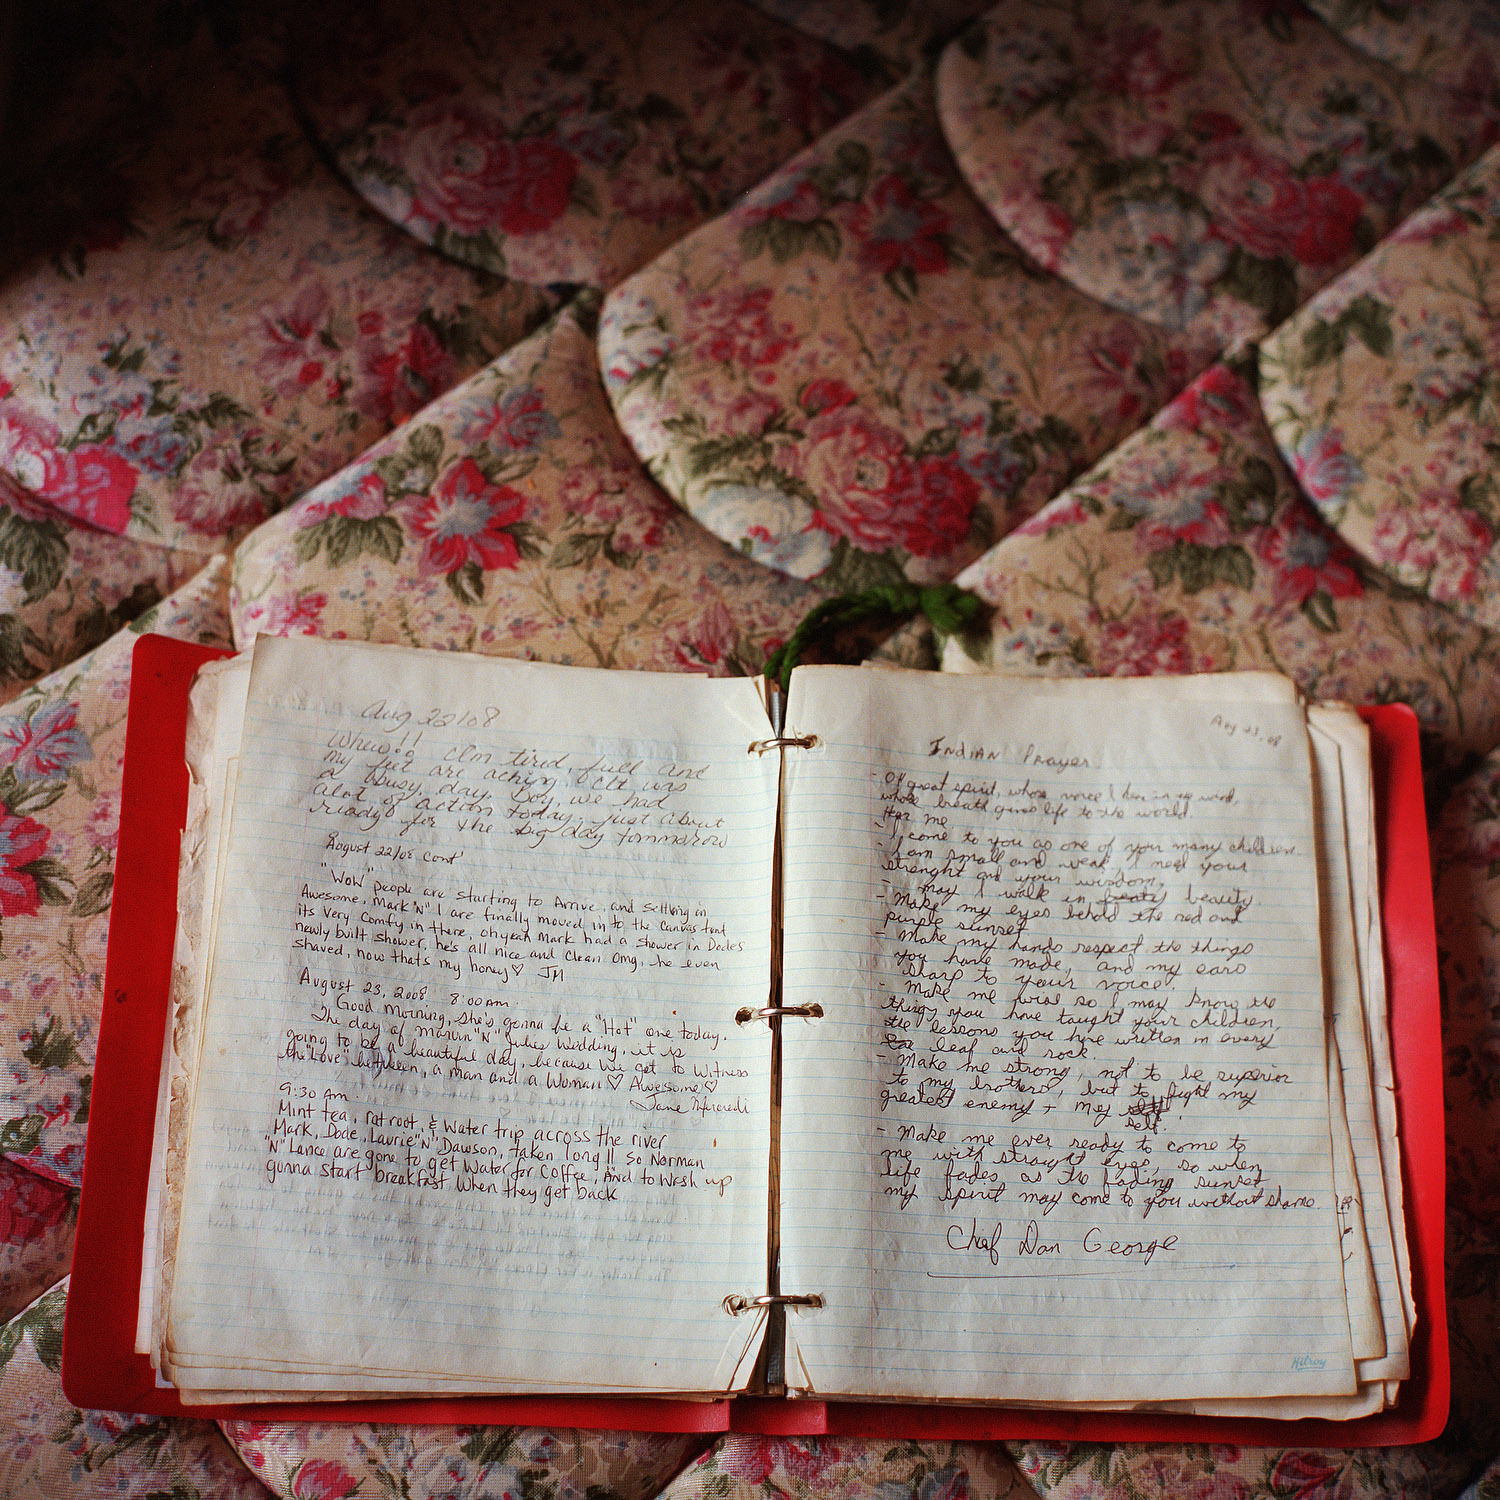 Aug 22/08
Whew!! I'm tired, full and
my feet are aching. It was
a busy, day. Boy, we had
alot of action today, just about
ready for the big day tommorow
August 22/08 Cont'
"WoW" people are starting to Arrive, and settling in
Awesome, Mark "N" I are finally moved in to the canvas tent
its very comfy in there, oh yeah Mark had a shower in Dode's
newly built shower, he's all nice and clean omg, he even
shaved, now thats my honey♡ JM
August 23, 2008 8:00 am.
Good Morning, She's gonna be a "Hot" one today.
The day of Marvin "N" Julies Wedding, it is
going to be a beautiful day, because we get to witness
the "Love" between, a man and a Woman ♡ Awesome ♡
Jane
9:30 Am.
Mint tea, ratroot, & water trip across the river
Mark, Dode, Laurie "N" Dawson, taken long!! So Norman
"N" Lance are gone to get Water for Coffee, And to Wash up
gonna start breakfast when they get back
Aug 23, 08
Indian Prayer
- Oh great spirit, whose voice I hear in my wind,
whose breath gives life to the world.
Hear me
- I come to you as one of your many children.
- I am small and weak, I need your
strenght and your wisdom.
- may I walk in beauty.
- Make my eyes behold the red and
purple sunset
- Make my hands respect the things
you have made, and my ears
sharp to your voice.
- Make me wise so I may know the
things you have taught your children,
the lessons you have written in every
leaf and rock.
- Make me strong, not to be superior
to my brothers, but to fight my
greatest enemy + my
self.
- Make me ever ready to come to
me with straight eyes, so when
life fades as the fading sunset
my spirit may come to you without shame.
Chief Dan George
Hilroy